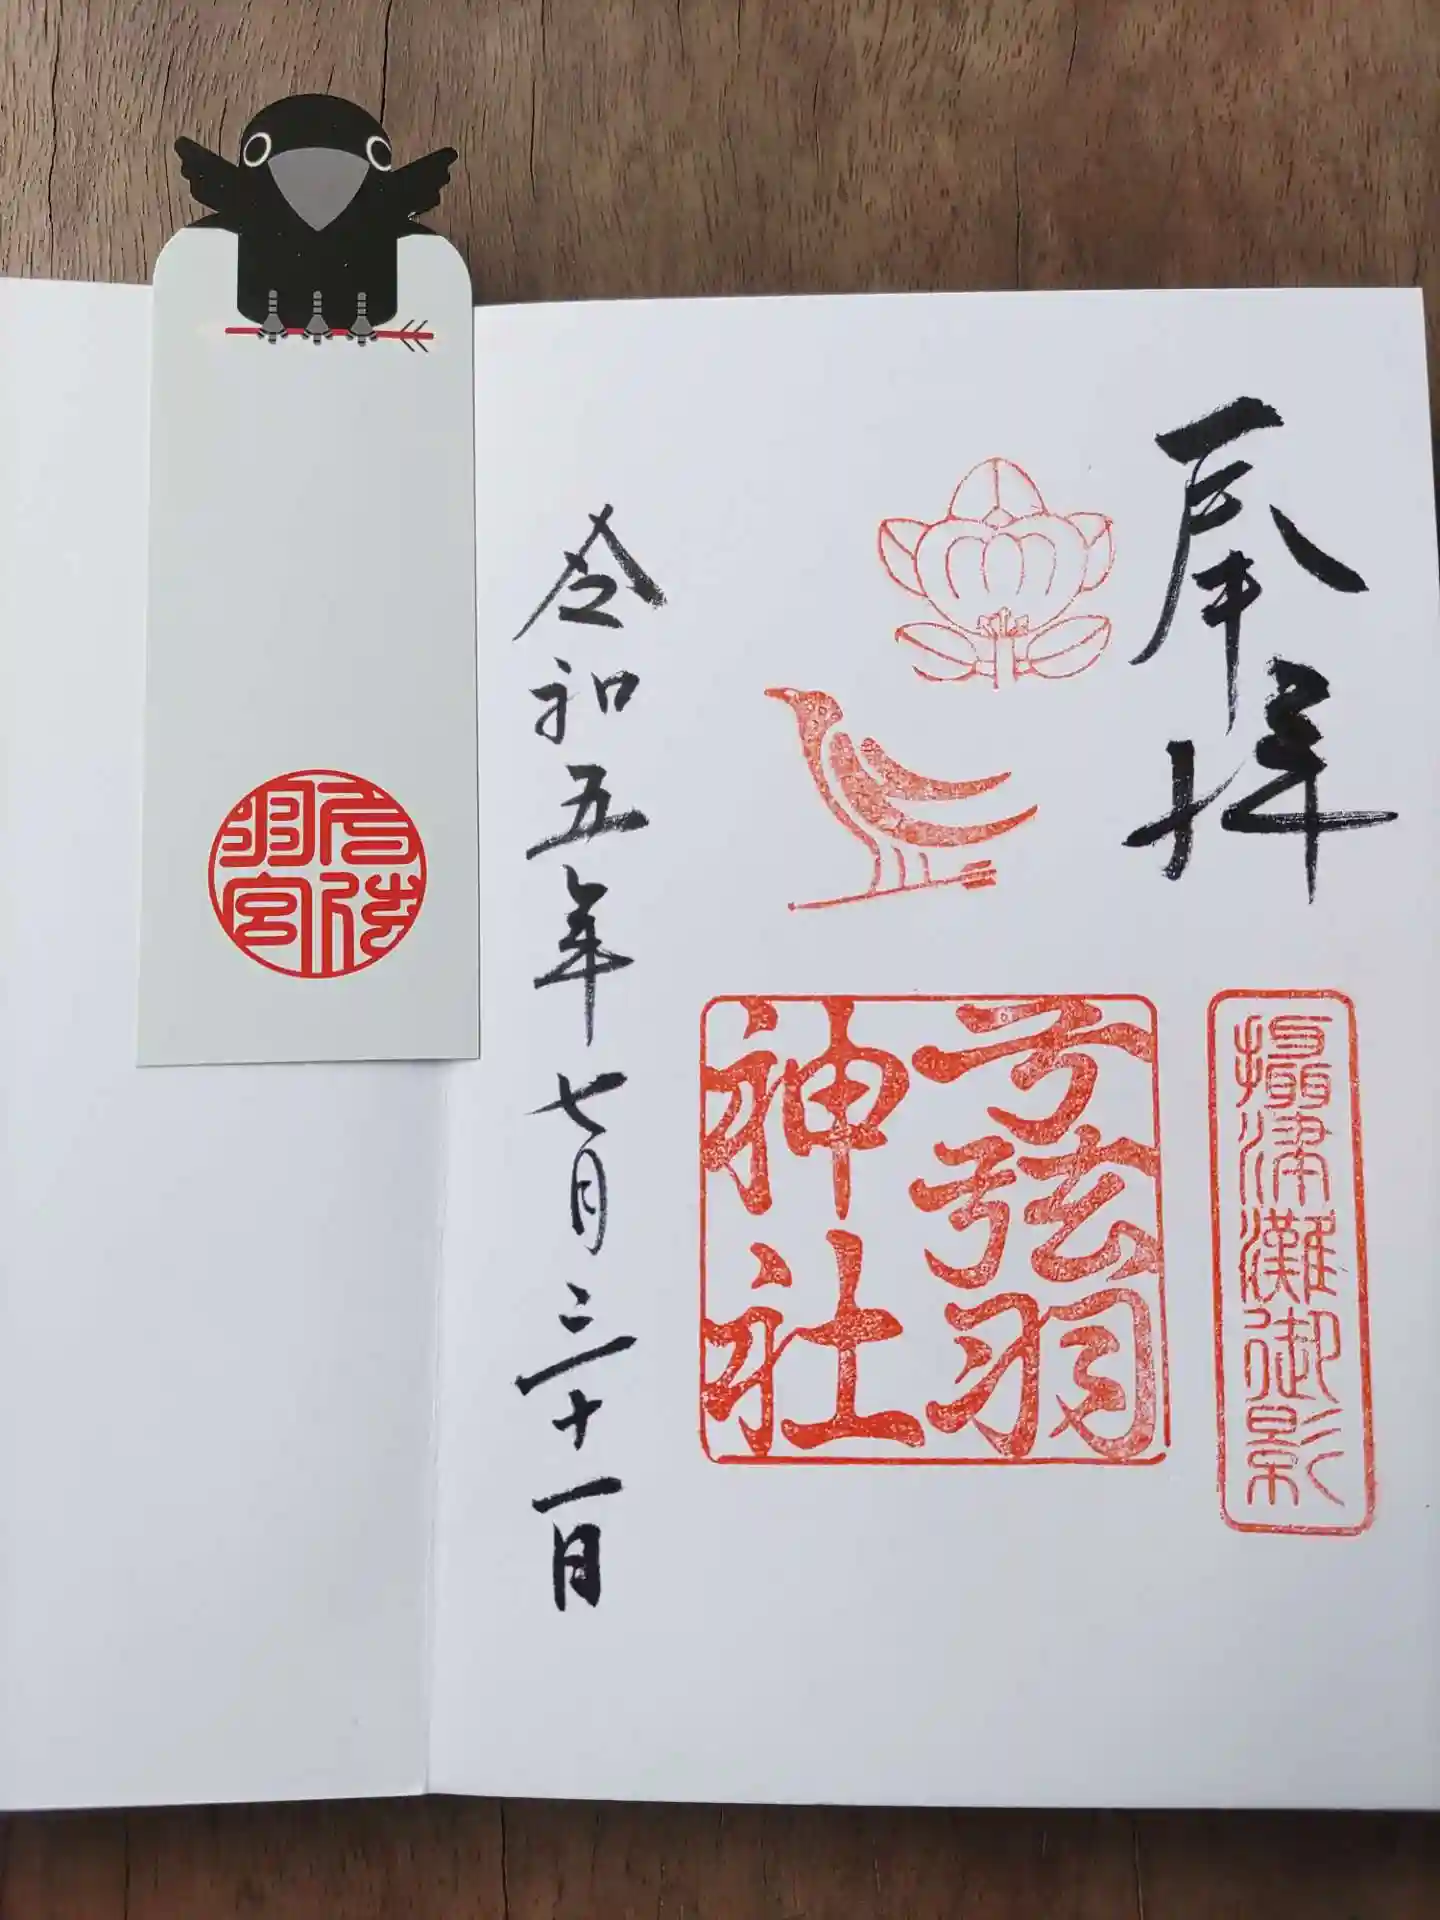 奉拝
攝津灘御影
弓弦羽
神社
令和五年七月三十一日
弓弦
羽宮